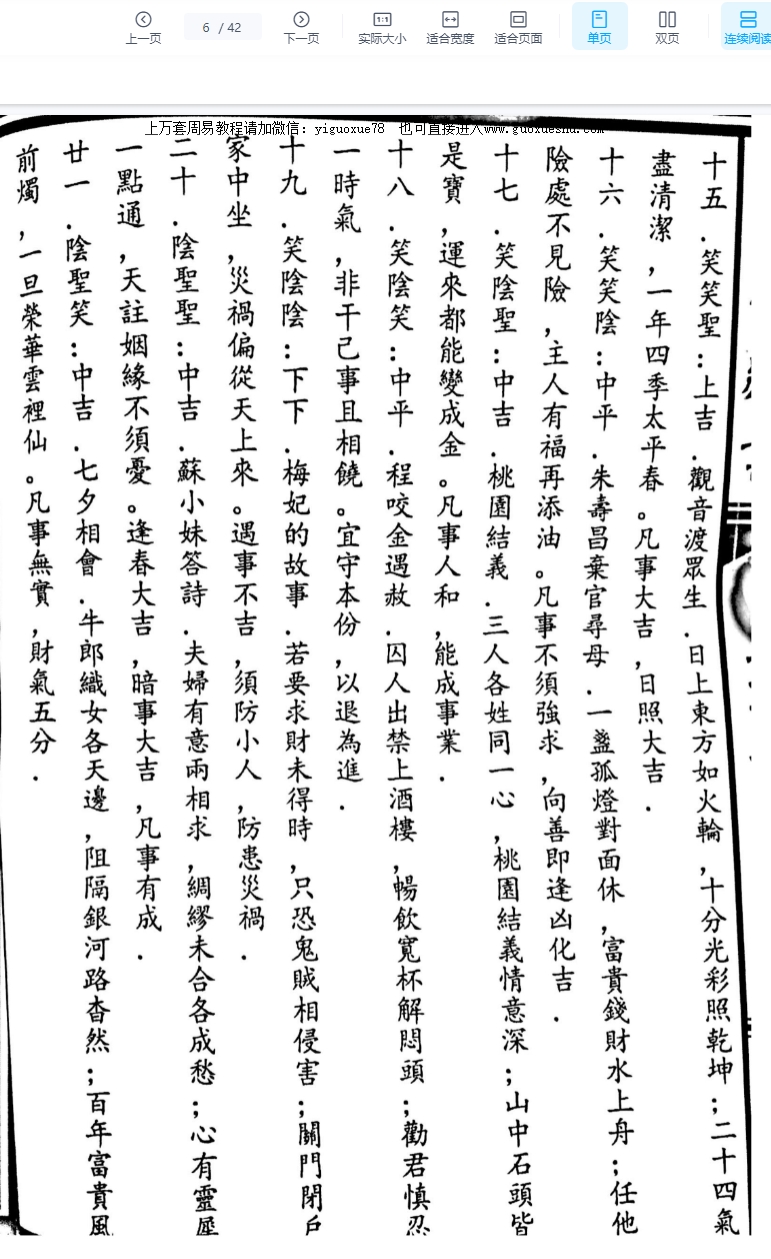 上一页
6 / 42
下一页
实际大小
适合宽度
适合页面
单页
双页
连续阅读
上万套周易教程请加微信：yiguoxue78　也可直接进入www.guoxueshu.com
十五．笑笑聖：上吉．觀音渡眾生．日上東方如火輪，十分光彩照乾坤；二十四氣
盡清潔，一年四季太平春。凡事大吉，日照大吉．
十六．笑笑陰：中平．朱壽昌棄官尋母．一盞孤燈對面休，富貴錢財水上舟；任他
險處不見險，主人有福再添油。凡事不須強求，向善即逢凶化吉．
十七．笑陰聖：中吉．桃園結義．三人各姓同一心，桃園結義情意深；山中石頭皆
是寶，運來都能變成金。凡事人和，能成事業．
十八．笑陰笑：中平．程咬金遇赦．囚人出禁上酒樓，暢飲寬杯解悶頭；勸君慎忍
一時氣，非干己事且相饒。宜守本份，以退為進．
十九．笑陰陰：下下．梅妃的故事．若要求財未得時，只恐鬼賊相侵害；關門閉戶
家中坐，災禍偏從天上來。遇事不吉，須防小人，防患災禍．
二十．陰聖聖：中吉．蘇小妹答詩．夫婦有意兩相求，綢繆未合各成愁；心有靈犀
一點通，天註姻緣不須憂。逢春大吉，暗事大吉，凡事有成．
廿一．陰聖笑：中吉．七夕相會．牛郎織女各天邊，阻隔銀河路杳然；百年富貴風
前燭，一旦榮華雲裡仙。凡事無實，財氣五分．